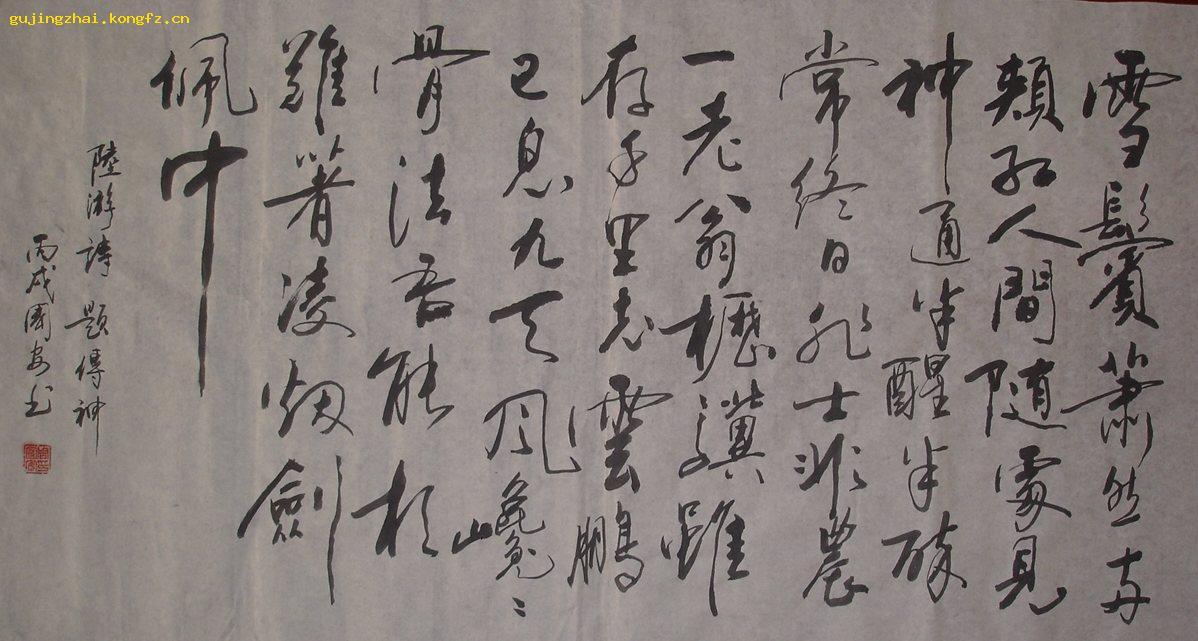 gujingzhai.kongfz.cn
雪鬢蕭然两
頰紅人間随處見
神通半醒半醉
常終日非士非農
一老翁櫪驥雖
存千里志雲鵬
已息九天风巉〻
骨法吾能相
難著凌烟劍
佩中
陸游詩題傳神
丙戌國安书